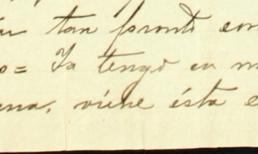 tan pronto com
= Ya tengo en m
una, viene ésta e